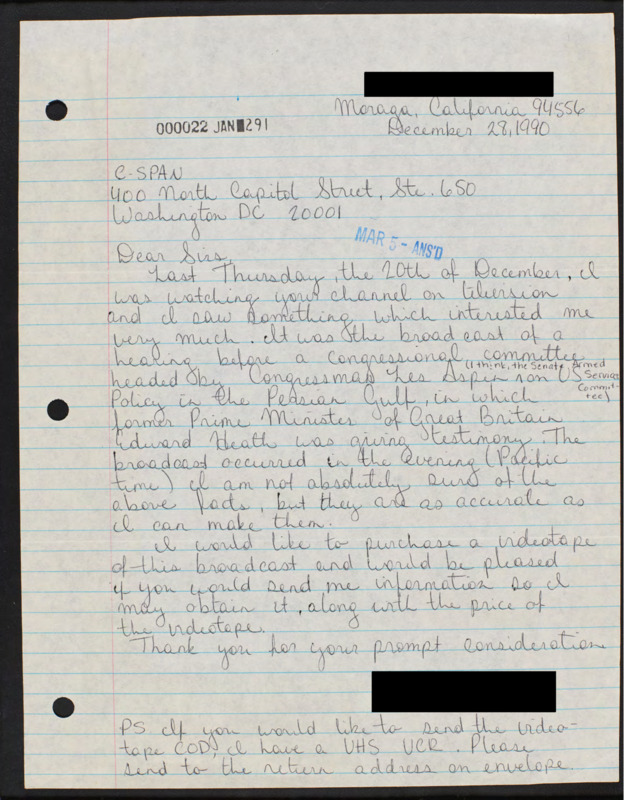 Moraga, California 94556
December 28, 1990
000022 JAN 291
C-SPAN
400 North Capitol Street, Ste. 650
Washington DC 20001
MAR 5 - ANS'D
Dear Sirs,
Last Thursday, the 20th of December, I
was watching your channel on
and I saw something which interested me
very much. It was the broadcast of a
hearing before a Congressional committee
(I think, the Senate Armed Services Committee)
headed by Congressman Les Aspin on US
Policy in the Persian Gulf, in which
former Prime Minister of Great Britain
Edward Heath was giving testimony. The
broadcast occurred in the evening (Pacific
time) I am not absolutely sure of the
above facts, but they are as accurate as
I can make them.
I would like to purchase a videotape
of this broadcast and would be pleased
if you would send me information so I
may obtain it, along with the price of
the videotape.
Thank you for your prompt consideration
PS If you would like to send the video-
tape COD, I have a VHS VCR. Please
send to the return address on envelope.